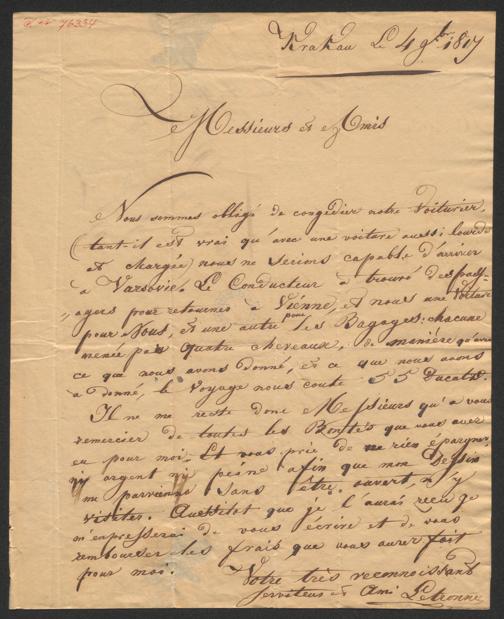 76334
Krakau Le 4 9br 1817
Messieurs et Amis
Nous sommes obligé de congédier notre Voiturier,
(tant il est vrai qu'avec une voiture aussi lourde
et chargée nous ne serions capable d'arriver
à Varsovie. Le Conducteur a trouvé des pass-
agers pour retourner à Viénne, et nous une Voiture
pour Nous, et une autre pour les Bagages, chacune
menée par quatre chevaux, de manière qu'avec
ce que nous avons donné, et ce que nous avons
à donné, le Voyage nous coute 55 Ducats.
Il ne me reste donc Messieurs qu'a vous
remercier de toutes les Bontés que vous avez
eu pour moi. Et vous prié de ne rien épargner
ny argent ny peine afin que mon Dessin
me parvienne sans être ouvert, n'y
visiter. Aussitot que je l'aurai reçu je
m'empresserai de vous écrire et de vous
rembourser les frais que vous aurez fait
pour moi.
Votre très reconnoissant
serviteur et Ami Letronne